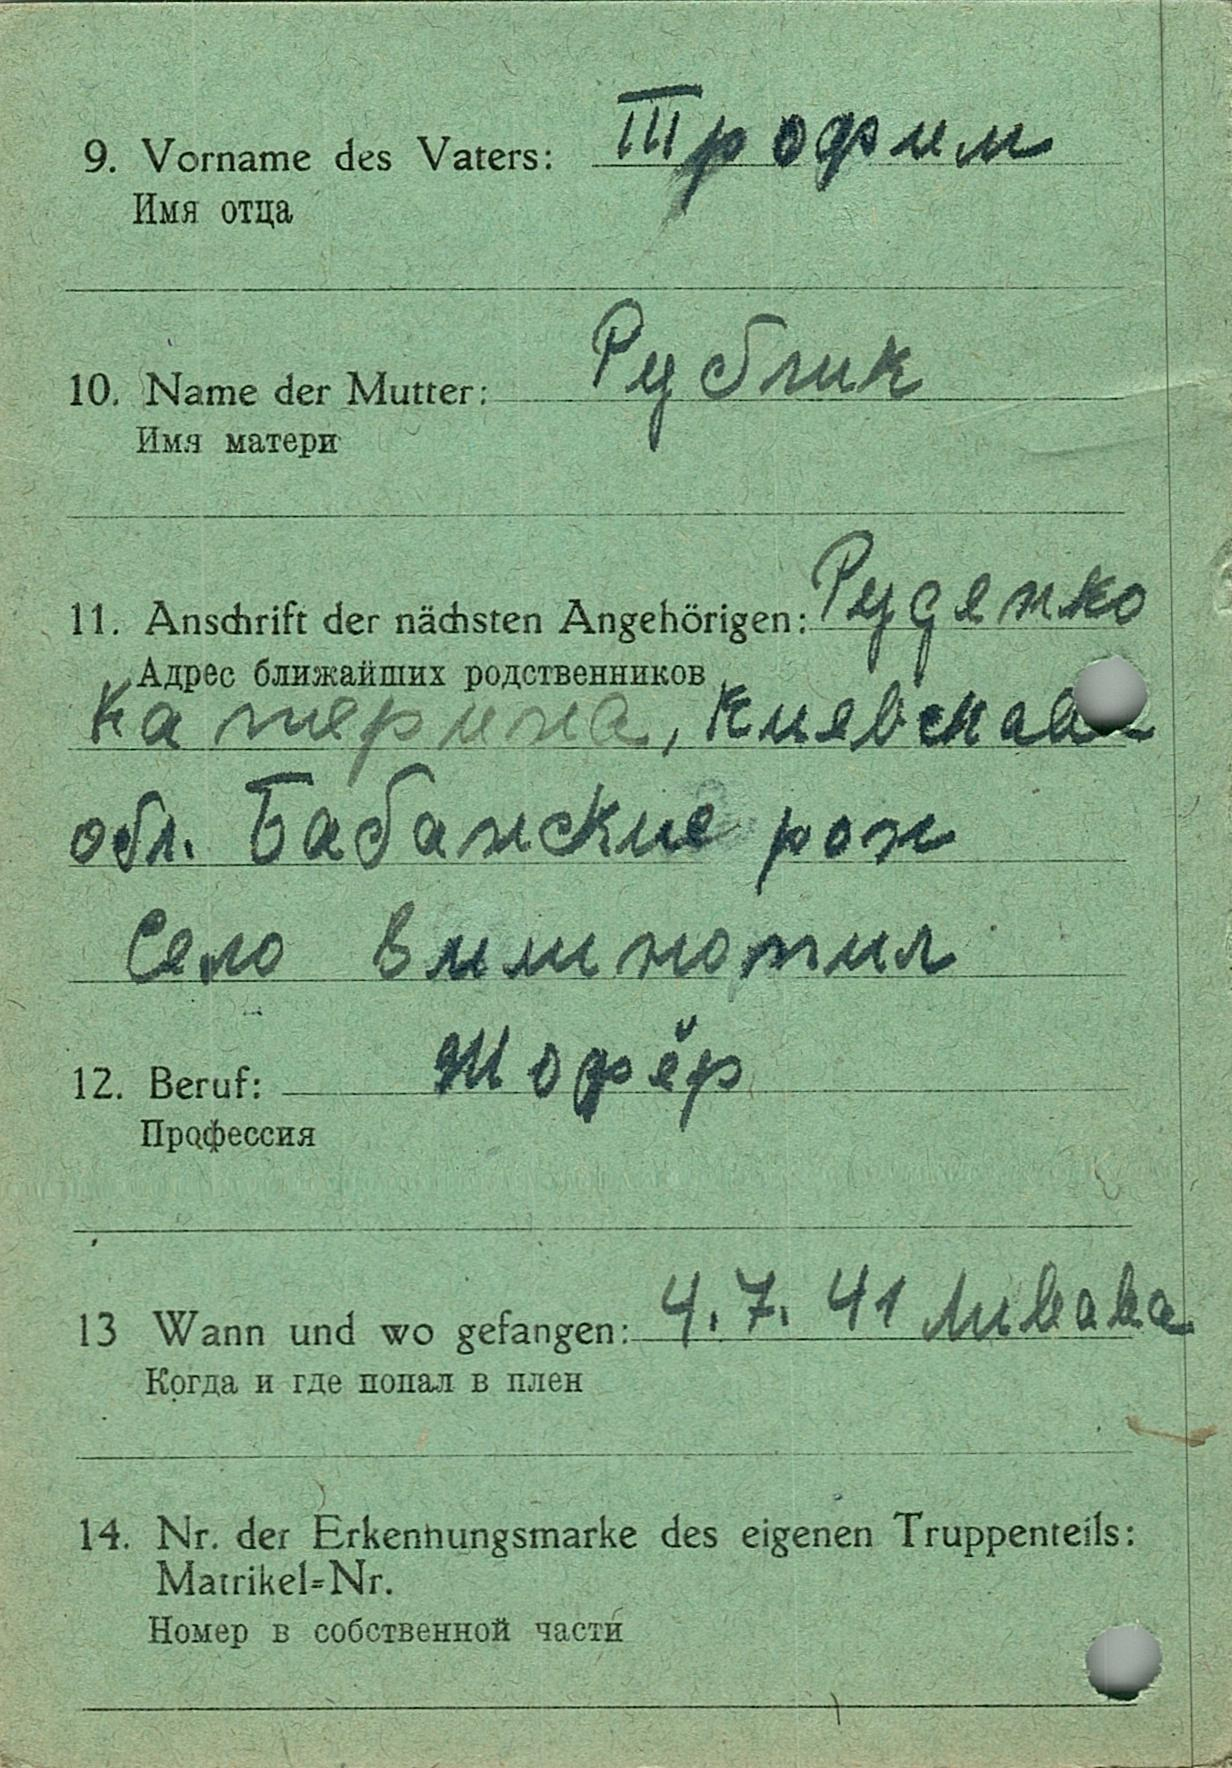 9. Vorname des Vaters: Трофим
Имя отца
10. Name der Mutter: Рублик
Имя матери
11. Anschrift der nächsten Angehörigen: Руденко
Адрес ближайших родственников
Катерина, Киевская
обл. Бабанские рон
Село
12. Beruf: Шофёр
Профессия
13 Wann und wo gefangen: 4.7.41
Когда и где попал в плен
14. Nr. der Erkennungsmarke des eigenen Truppenteils:
Matrikel=Nr.
Номер в собственной части